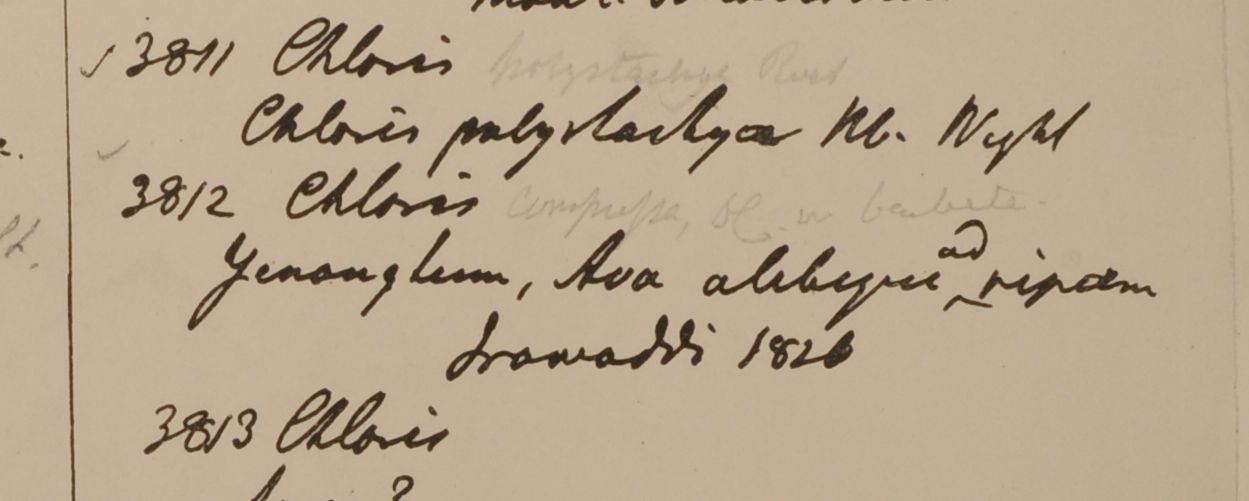 3811 Chloris polystachya Roxb
Chloris polystachya Hb. Wight
3812 Chloris compressa, DC. v. barbata.
Yenangheum, Ava alibique ad ripam
Irawaddi 1826
3813 Chloris